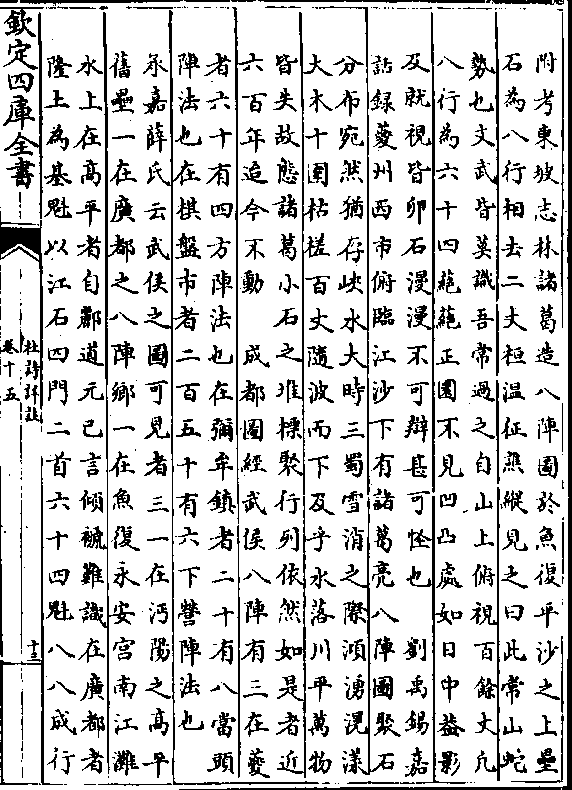 附考東坡志林諸葛造八陣圖於魚復平沙之上壘
石為八行相去二丈桓溫征譙縱見之曰此常山蛇
勢也文武皆莫識吾常過之自山上俯視百餘丈凡
八行為六十四蕝蕝正圜不見凹凸處如日中蓋影
及就視皆卵石漫漫不可辯甚可怪也 劉禹錫嘉
話録夔州西市俯臨江沙下有諸葛亮八陣圖聚石
分布宛然猶存峽水大時三蜀雪消之際澒湧滉漾
大木十圍枯槎百丈隨波而下及乎水落川平萬物
皆失故態諸葛小石之堆標聚行列依然如是者近
六百年迨今不動 成都圖經武侯八陣有三在夔
者六十有四方陣法也在彌牟鎮者二十有八當頭
陣法也在棋盤市者二百五十有六下營陣法也
永嘉薛氏云武侯之圖可見者三一在沔陽之高平
舊壘一在廣都之八陣鄉一在魚復永安宫南江灘
水上在高平者自酈道元已言傾褫難識在廣都者
隆土為基魁以江石四門二首六十四魁八八成行
欽定四庫全書
杜詩詳註
卷十五
十三